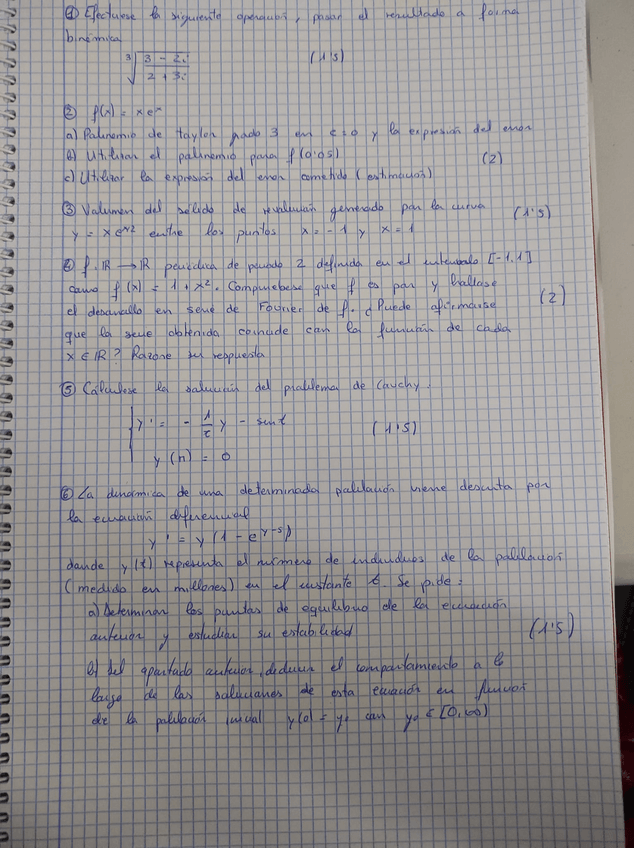 ① Efectuese la siguiente operación, pasar el resultado a forma
binómica
∛((3 - 2i)/(2 + 3i)) (1'5)
② f(x) = x eˣ
a) Polinomio de Taylor grado 3 en c=0 y la expresión del error
b) Utilizar el polinomio para f(0'05) (2)
c) Utilizar la expresión del error cometido (estimación)
③ Volumen del sólido de revolución generado por la curva (1'5)
y = x e^x² entre los puntos x = -1 y x = 1
④ f: ℝ → ℝ periódica de periodo 2 definida en el intervalo [-1,1]
como f(x) = 1 + x². Compruebese que f es par y hallase
el desarrollo en serie de Fourier de f. ¿Puede afirmarse (2)
que la serie obtenida coincide con la función de cada
x ∈ ℝ? Razone su respuesta
⑤ Cálculese la solución del problema de Cauchy.
y' = - 1/t y - sent (1'5)
y(π) = 0
⑥ La dinámica de una determinada población viene descrita por
la ecuación diferencial
y' = y (1 - e^(y-5))
donde y(t) representa el número de individuos de la población
(medido en millones) en el instante t. Se pide:
a) Determinar los puntos de equilibrio de la ecuación
anterior y estudiar su estabilidad (1'5)
b) Del apartado anterior, deducir el comportamiento a lo
largo de las soluciones de esta ecuación en función
de la población inicial y(0) = y₀ con y₀ ∈ [0,∞)